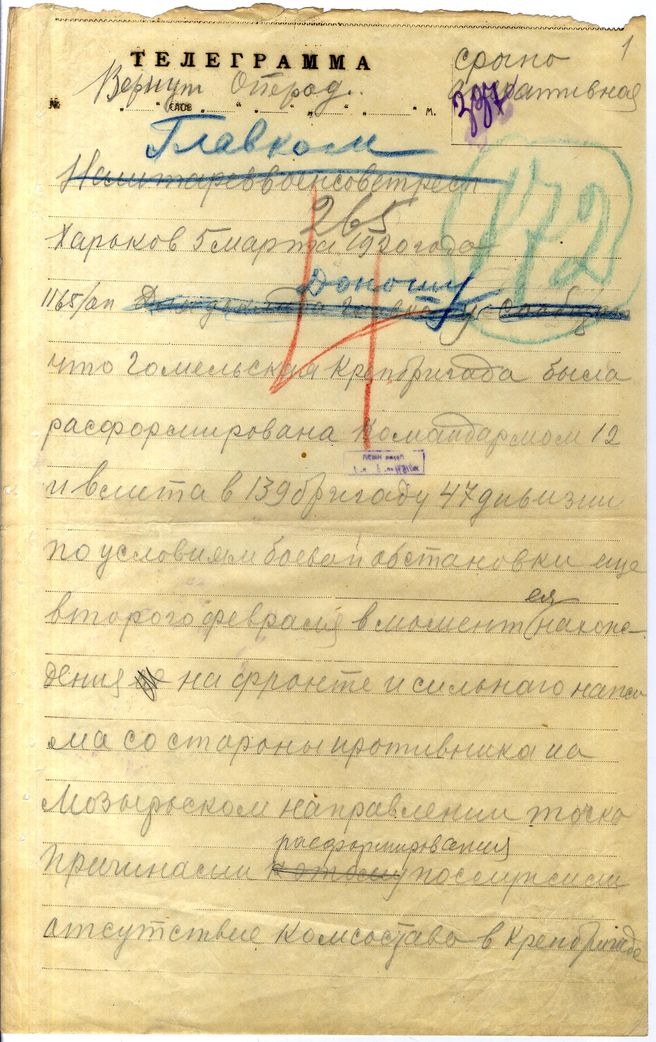 1
ТЕЛЕГРАММА
срочно
Вернут Оперод.
оперативная
397
№ " слов " " " " м.
Главком
172
265
Харьков 5 марта 1920 года
Доношу
1165/оп
что Гомельская Крепбригада была
расформирована Командармом 12
и влита в 139 бригаду 47 дивизии
по условиям боевой обстановки еще
ея
второго февраля в момент нахож-
дения на фронте и сильнаго нажи
ма со стороны противника на
Мозырьском направлении точка
расформирования
Причинами послужили
отсутствие комсостава в Крепбригаде